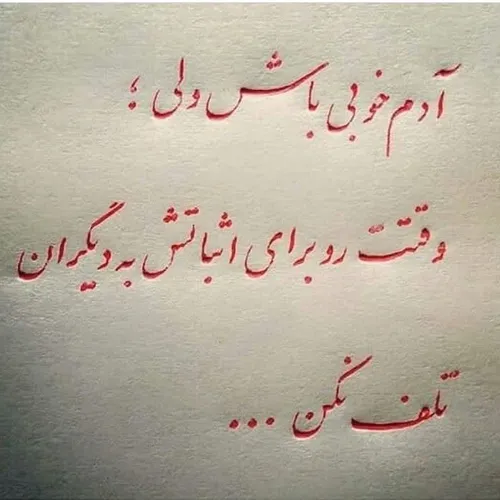 آدم خوبی باش ولی ؛
وقتت رو برای اثباتش به دیگران
تلف نکن ...